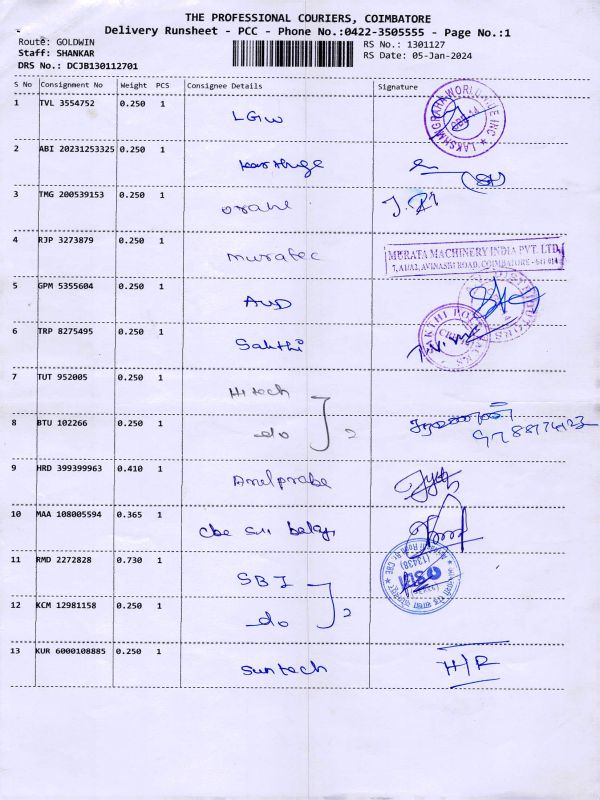 THE PROFESSIONAL COURIERS, COIMBATORE
Delivery Runsheet - PCC - Phone No.:0422-3505555 - Page No.:1
Route: GOLDWIN
Staff: SHANKAR
DRS No.: DCJB130112701
RS No.: 1301127
RS Date: 05-Jan-2024
S No Consignment No Weight PCS Consignee Details Signature
1 TVL 3554752 0.250 1 LGW
2 ABI 20231253325 0.250 1
3 TMG 200539153 0.250 1
4 RJP 3273879 0.250 1 muratec
MURATA MACHINERY INDIA PVT. LTD.
7, A1/A2, AVINASHI ROAD, COIMBATORE - 641 014
5 GPM 5355604 0.250 1
6 TRP 8275495 0.250 1 Sakthi
7 TUT 952005 0.250 1 Hitech
8 BTU 102266 0.250 1 do 2
9 HRD 399399963 0.410 1
10 MAA 108005594 0.365 1
11 RMD 2272828 0.730 1 SBI
12 KCM 12981158 0.250 1 do 2
13 KUR 6000108885 0.250 1 Suntech H/R